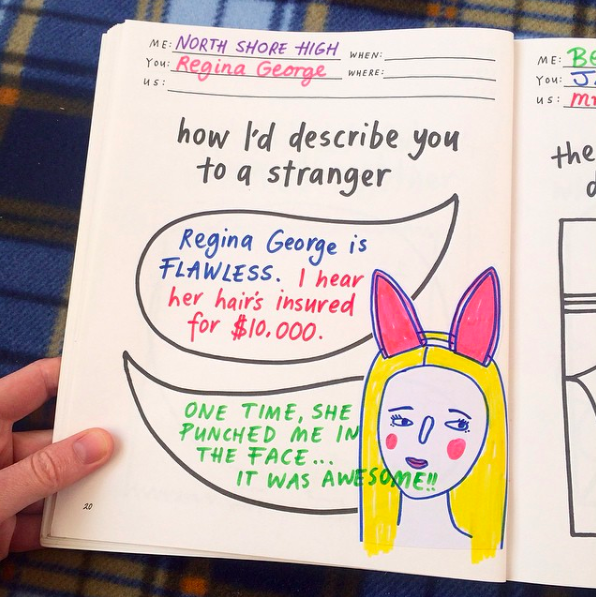 ME: NORTH SHORE HIGH WHEN:
YOU: Regina George WHERE:
US:
how I'd describe you
to a stranger
Regina George is
FLAWLESS. I hear
her hair's insured
for $10,000.
ONE TIME, SHE
PUNCHED ME IN
THE FACE...
IT WAS AWESOME!!
20
ME: BE
YOU: J.
US:
the
d